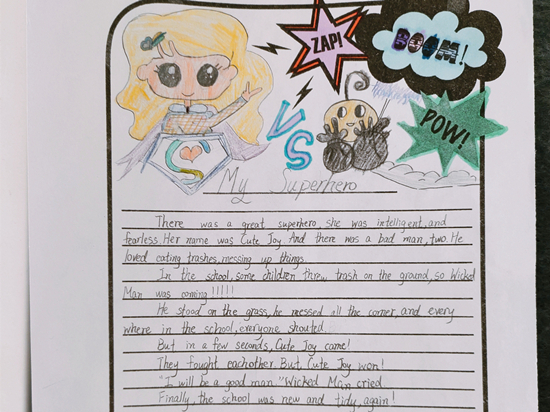 ZAP!
BOOM!
POW!
VS
S
My Superhero
There was a great superhero, she was intelligent, and
fearless. Her name was Cute Joy And there was a bad man, two. He
loved eating trashes, messing up things.
In the school, some children threw trash on the ground, so Wicked
Man was coming!!!!!
He stood on the grass, he messed all the corner, and every
where in the school, everyone shouted.
But in a few seconds, Cute Joy came!
They fought eachother. But, Cute Joy won!
"I will be a good man." Wicked Man cried.
Finally, the school was new and tidy, again!